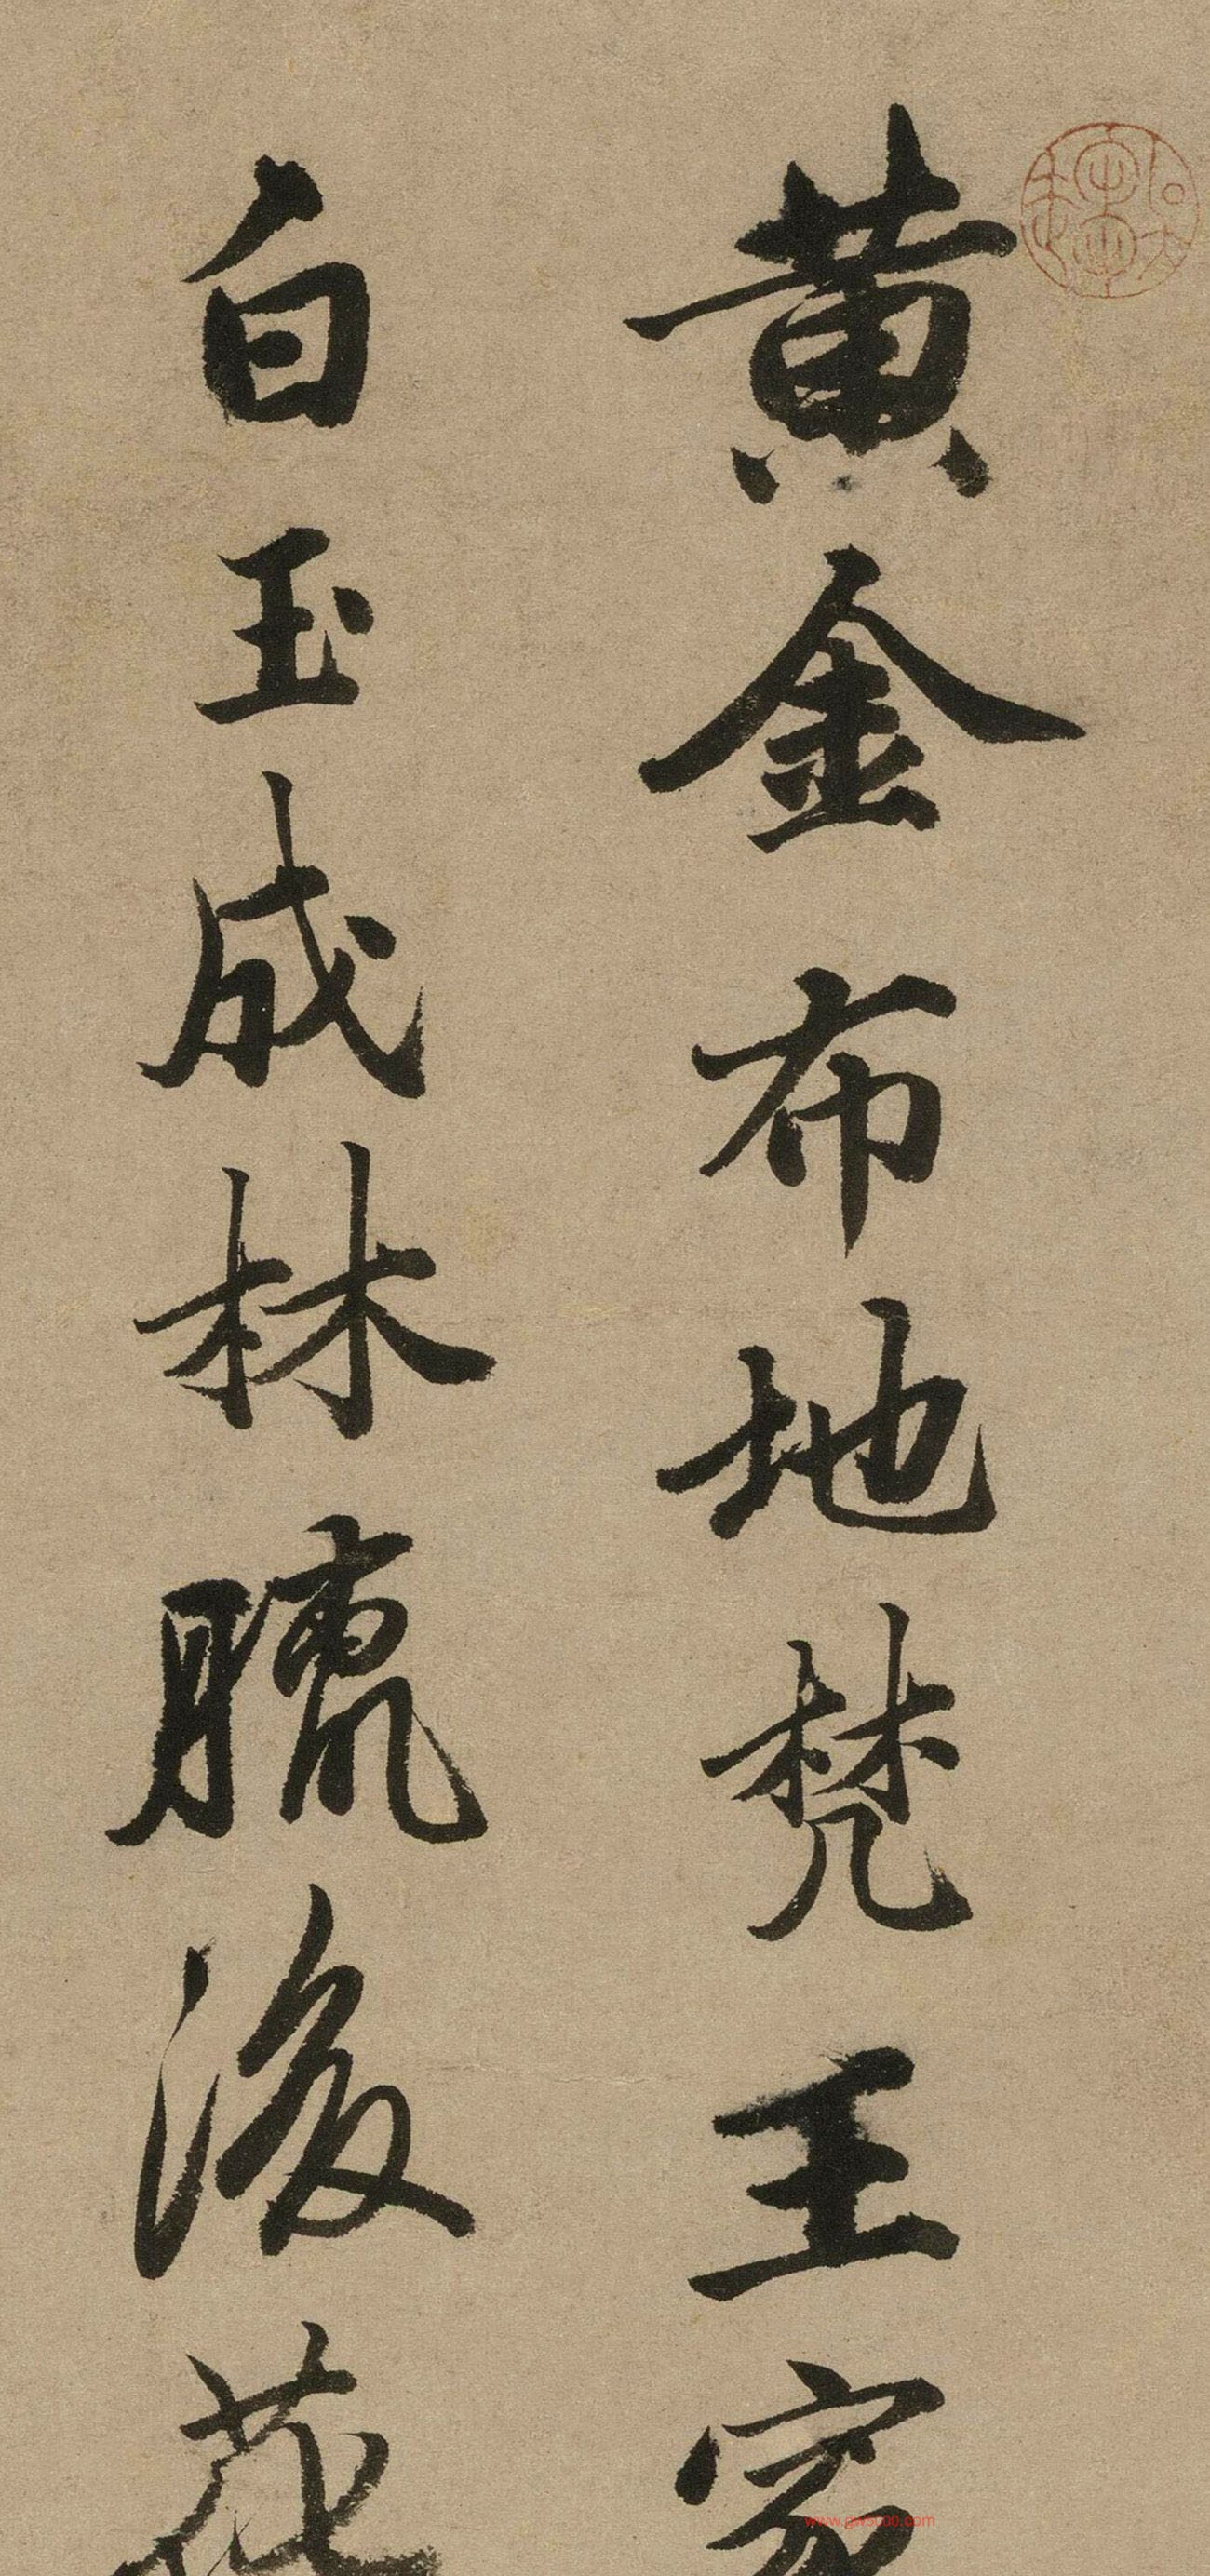 黄金布地梵王家
白玉成林臘後花
www.gws000.com